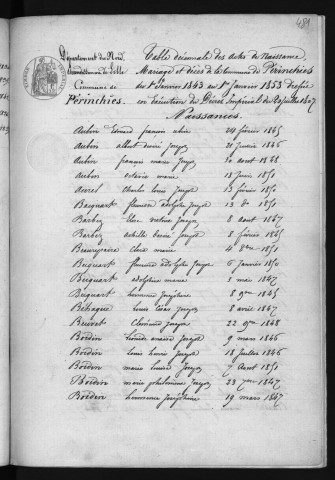 481
Département du Nord
Arrondissement de Lille
Commune de
Pérenchies
Table décennale des actes de Naissance,
Mariage et décès de la Commune de Pérenchies
du 1er Janvier 1843 au 1er Janvier 1853 dressée
en exécution du Décret Impérial du 20 juillet 1807.
Naissances.
Aubon Edouard françois 24 février 1845
Aubon albert désiré Joseph 21 Janvier 1846
Aubon françois marie Joseph 30 août 1848
Aubon octavie marie 18 Juin 1850
Charles Louis Joseph 13 février 1850
Becquart floreline adolphe Joseph 13 1850
Barbez Joseph 8 août 1847
Barbez achille désiré Joseph 8 février 1845
Beaurepaire Clara marie 1850
Becquart florimond adolphe Joseph 6 Janvier 1850
Becquart adolphine marie 2 mai 1847
Becquart Joséphine 8 9bre 1845
Béthague Louis César Joseph 8 avril 1847
Beuvet Clémence Joseph 22 9bre 1848
Bordin Joseph 9 mars 1846
Bordin Louis henri Joseph 18 Juillet 1846
Bordin marie louise Joseph 7 Août 1850
Bordin marie philomène Joseph 23 1847
Bordin Joséphine 19 mars 1847